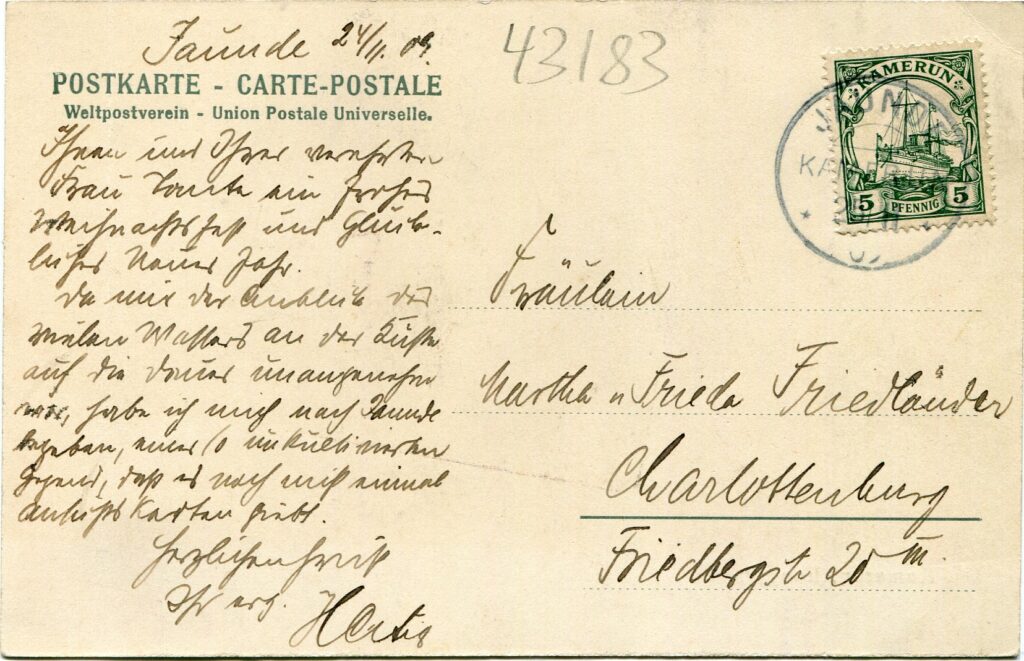 Jaunde 24/11. 09.
43183
POSTKARTE - CARTE-POSTALE
Weltpostverein - Union Postale Universelle.
KAMERUN
5 PFENNIG 5
JAUNDE
KAMERUN
Ihnen und Ihrer verehrten
Frau Tante ein frohes
Weihnachtsfest und Glück-
liches Neues Jahr.
Da mir der Anblick des
vielen Wassers an der Küste
auf die Dauer unangenehm
war, habe ich mich nach Jaunde
begeben, einer so unkultivierten
Gegend, daß es noch nicht einmal
Ansichtskarten giebt.
Herzlichen Gruß
Ihr erg.
Fräulein
Martha u Frieda Friedländer
Charlottenburg
Friedbergstr 20 III.